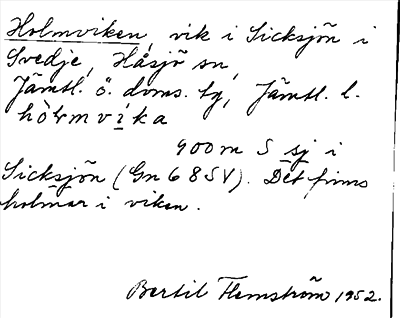 Holmviken, vik i Sicksjön i
Svedje, Håsjö sn,
Jämtl. ö. doms. tg, Jämtl. l.
hòlrmvika
900 m S sj i
Sicksjön (Gn 68 SV). Det finns
holmar i viken.
Bertil Flemström 1952.